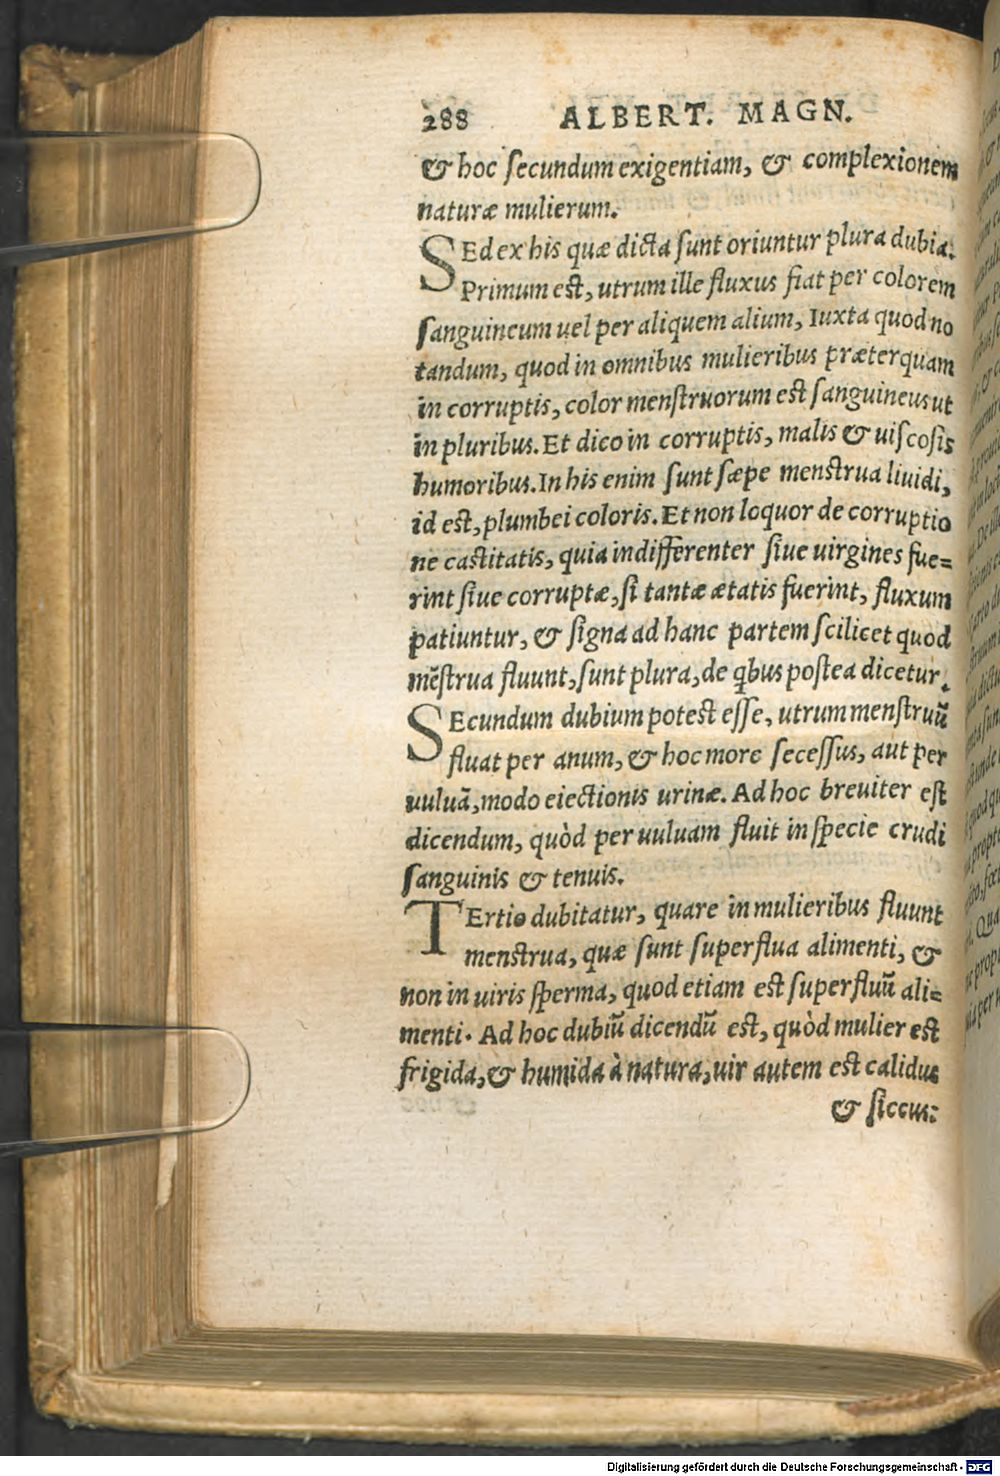 288 ALBERT. MAGN.
& hoc ſecundum exigentiam, & complexionem
naturæ mulierum.
SEd ex his quæ dicta ſunt oriuntur plura dubia.
Primum est, utrum ille fluxus fiat per colorem
ſanguineum uel per aliquem alium, Iuxta quod no
tandum, quod in omnibus mulieribus præterquam
in corruptis, color menstruorum est ſanguineus ut
in pluribus. Et dico in corruptis, malis & uiſcoſis
humoribus. In his enim ſunt ſæpe menstrua liuidi,
id est, plumbei coloris. Et non loquor de corruptio
ne castitatis, quia indifferenter ſiue uirgines fue=
rint ſiue corruptæ, ſi tantæ ætatis fuerint, fluxum
patiuntur, & ſigna ad hanc partem ſcilicet quod
mēſtrua fluunt, ſunt plura, de qbus poſtea dicetur.
SEcundum dubium potest eſſe, utrum menſtruū
fluat per anum, & hoc more ſeceſſus, aut per
uuluā, modo eiectionis urinæ. Ad hoc breuiter eſt
dicendum, quòd per uuluam fluit in ſpecie crudi
ſanguinis & tenuis.
TErtio dubitatur, quare in mulieribus fluunt
menstrua, quæ ſunt ſuperflua alimenti, &
non in uiris ſperma, quod etiam est ſuperfluū ali=
menti. Ad hoc dubiū dicendū est, quòd mulier est
frigida, & humida à natura, uir autem est calidus
& ſiccus:
Digitalisierung gefördert durch die Deutsche Forschungsgemeinschaft - DFG